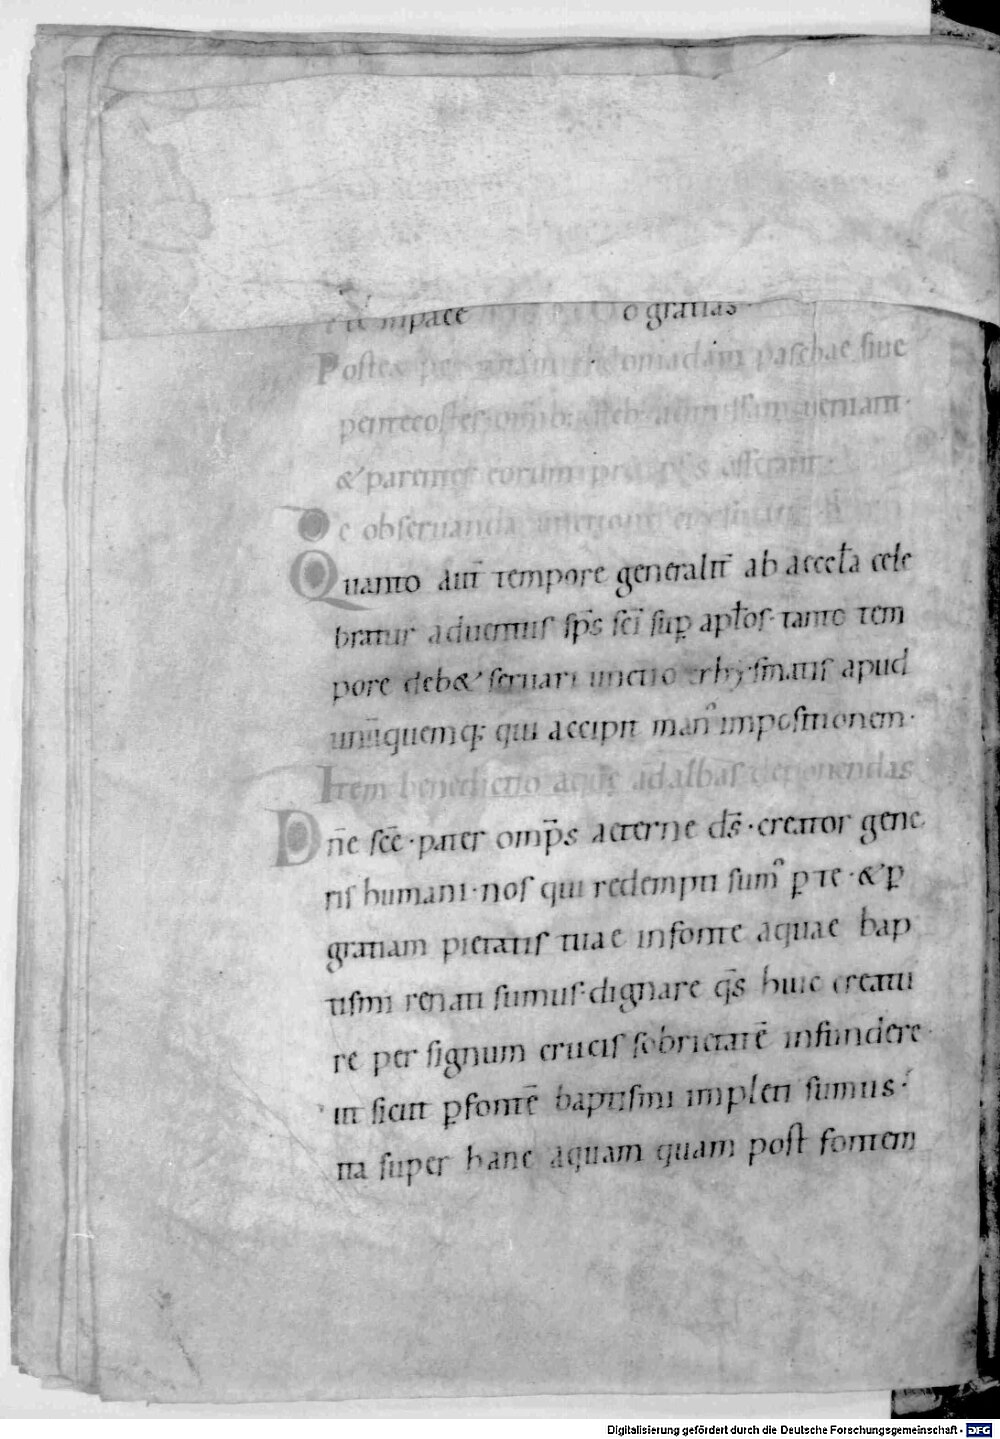 in pace o gratias·
Postea per totam ebdomadam paschae siue
pentecosten omib; dieb; ad missam ueniant·
& parentes eorum pro ipsis offerant·
De obseruanda unctione
Quanto aut̄ tempore generalit̄ ab aeccl̄a cele
bratur aduentus sp̄s sc̄i sup apl̄os· tanto tem
pore deb& seruari unctio chrysmatis apud
unūquemq; qui accipit man᷒ impositionem·
Item benedictio aquę ad albas deponendas
Dn̄e sc̄e· pater omp̄s aeterne d̄s· creator gene
ris humani· nos qui redempti sum᷒ p te· & p
gratiam pietatis tuae in fonte aquae bap
tismi renati sumus· dignare q̄s huic creatu
re per signum crucis sobrietatē infundere·
ut sicut p fontē baptismi impleti sumus·
ita super hanc aquam quam post fontem
Digitalisierung gefördert durch die Deutsche Forschungsgemeinschaft - DFG